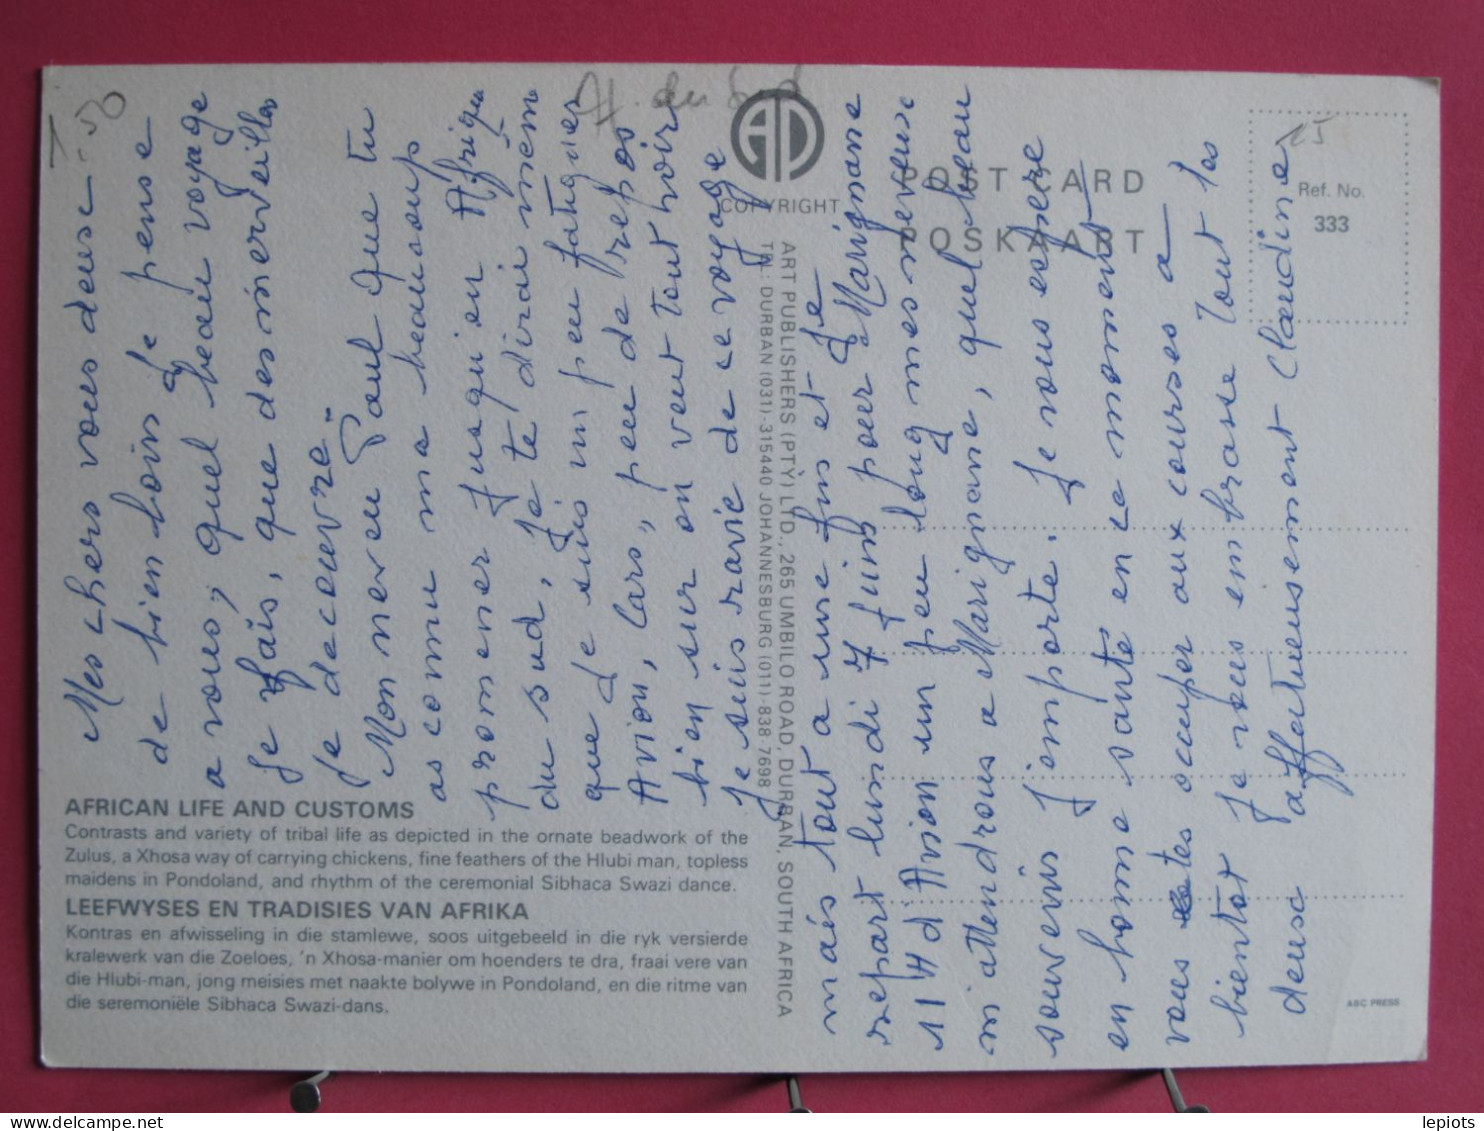 1.50
Af. du Sud
15
Mes chers vous deux
de bien loins je pense
a vous, quel beau voyage
je fais, que des merveilles
je decouvre
Mon neveu Paul que tu
as connu m'a beaucoup
promener jusqui en Afrique
du sud, je te dirai même
que je suis un peu fatiguer
Avion, Cars, peu de repos
bien sur on veut tout voir
je suis ravie de ce voyage
mais tout a une fin et je
repart lundi 7 Juin pour Marignane
11 H d'Avion un peu long mes neveux
m'attendrons a Marignane, quel beau
souvenir j'emporte. Je vous espere
en bonne santé en ce moment
vous etes occuper aux courses a
bientot je vous embrasse tout les
deux affectueusement Claudine
AFRICAN LIFE AND CUSTOMS
Contrasts and variety of tribal life as depicted in the ornate beadwork of the
Zulus, a Xhosa way of carrying chickens, fine feathers of the Hlubi man, topless
maidens in Pondoland, and rhythm of the ceremonial Sibhaca Swazi dance.
LEEFWYSES EN TRADISIES VAN AFRIKA
Kontras en afwisseling in die stamlewe, soos uitgebeeld in die ryk versierde
kralewerk van die Zoeloes, 'n Xhosa-manier om hoenders te dra, fraai vere van
die Hlubi-man, jong meisies met naakte bolywe in Pondoland, en die ritme van
die seremoniële Sibhaca Swazi-dans.
AD
COPYRIGHT
POST CARD
POSKAART
Ref. No.
333
ART PUBLISHERS (PTY) LTD., 265 UMBILO ROAD, DURBAN, SOUTH AFRICA
TEL: DURBAN (031)-315440 JOHANNESBURG (011)-838-7698
ABC PRESS
lepiots